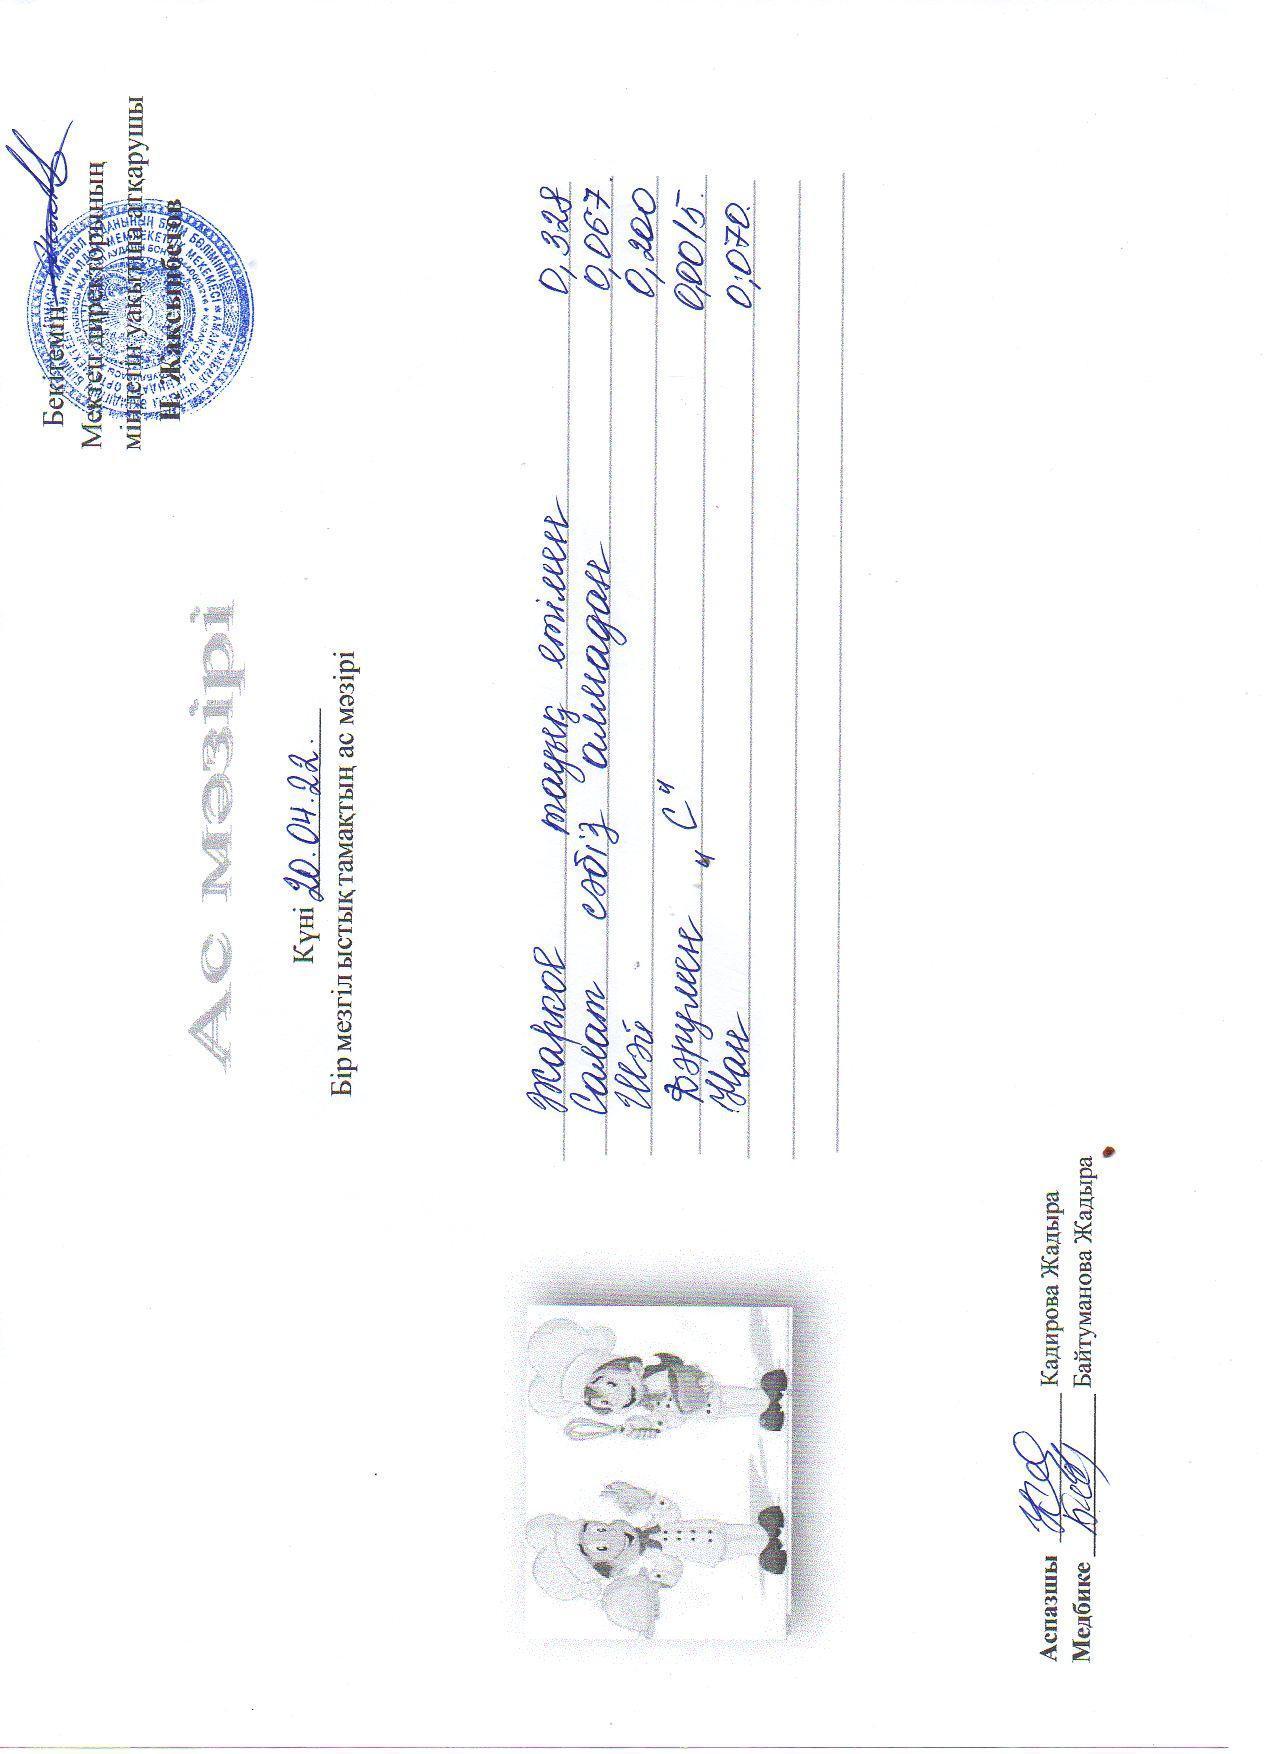 Бекітемін
Мектеп директорының
міндетін уақытша атқарушы
Н. Жаксымбетов
Ас мәзірі
Күні 20.04.22.
Бір мезгіл ыстық тамақтың ас мәзірі
Жаркое тауық етімен 0,328
Салат сәбіз алмадан 0,067.
Шәй 0,200
Дәрумен "С" 0,0015.
Нан 0,070.
Аспазшы Кадирова Жадыра
Медбике Байтуманова Жадыра